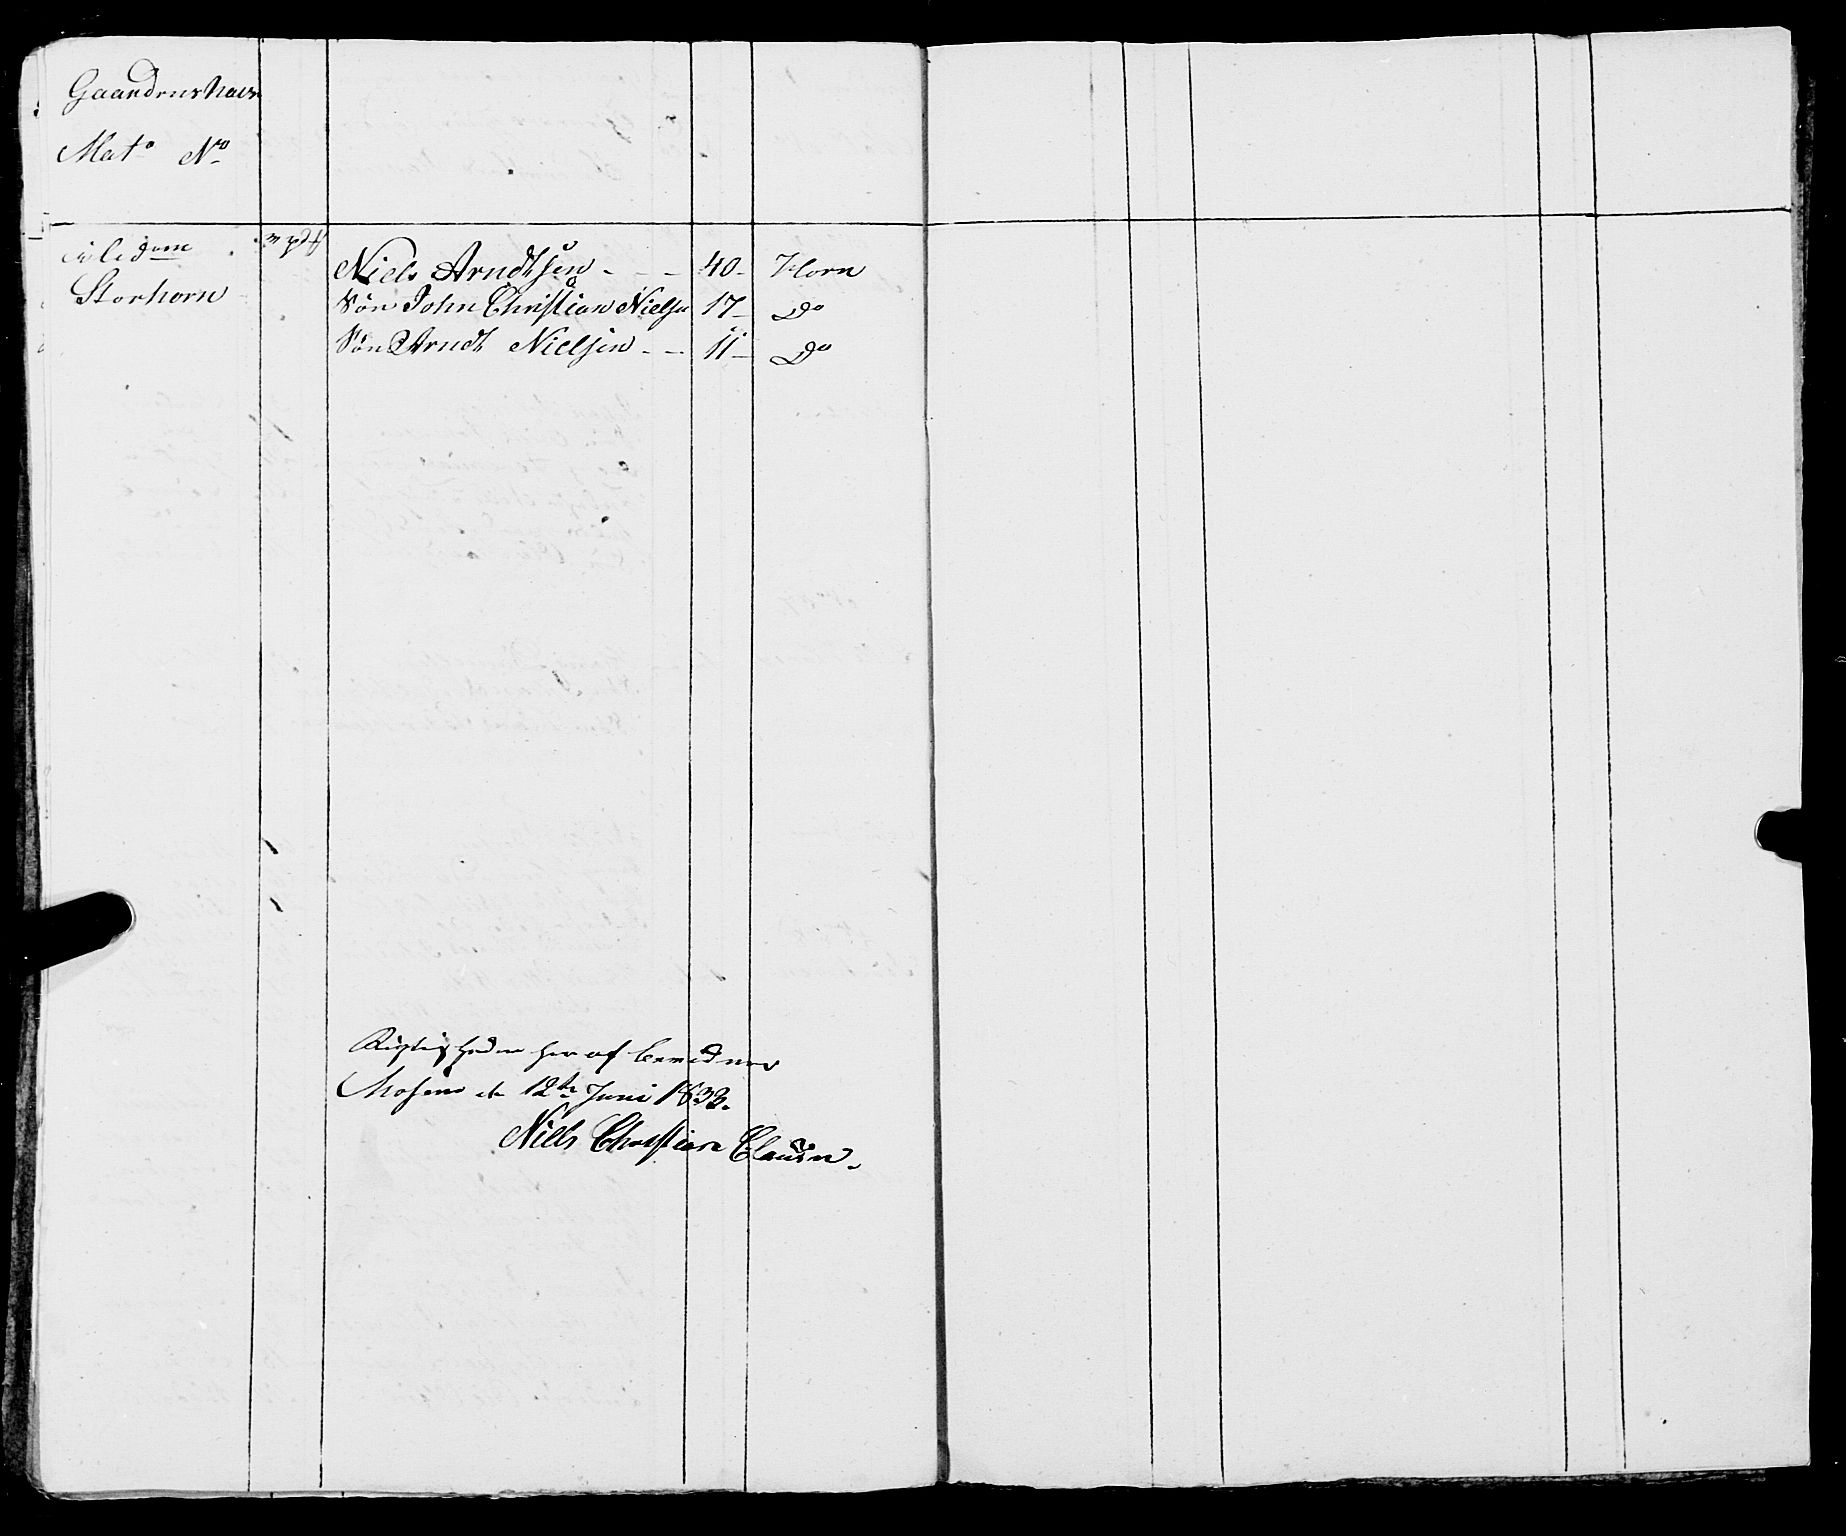 Gaardens Navn
Mat° N°
Storhorn
Niels Arndtsen - - - 40 - Horn
Søn John Christian Nielsen 17 - D°
Søn Arndt Nielsen - - 11 - D°
Rigtigheden her af bevidner
12te Juni 1833.
Niels Christian Clausen.